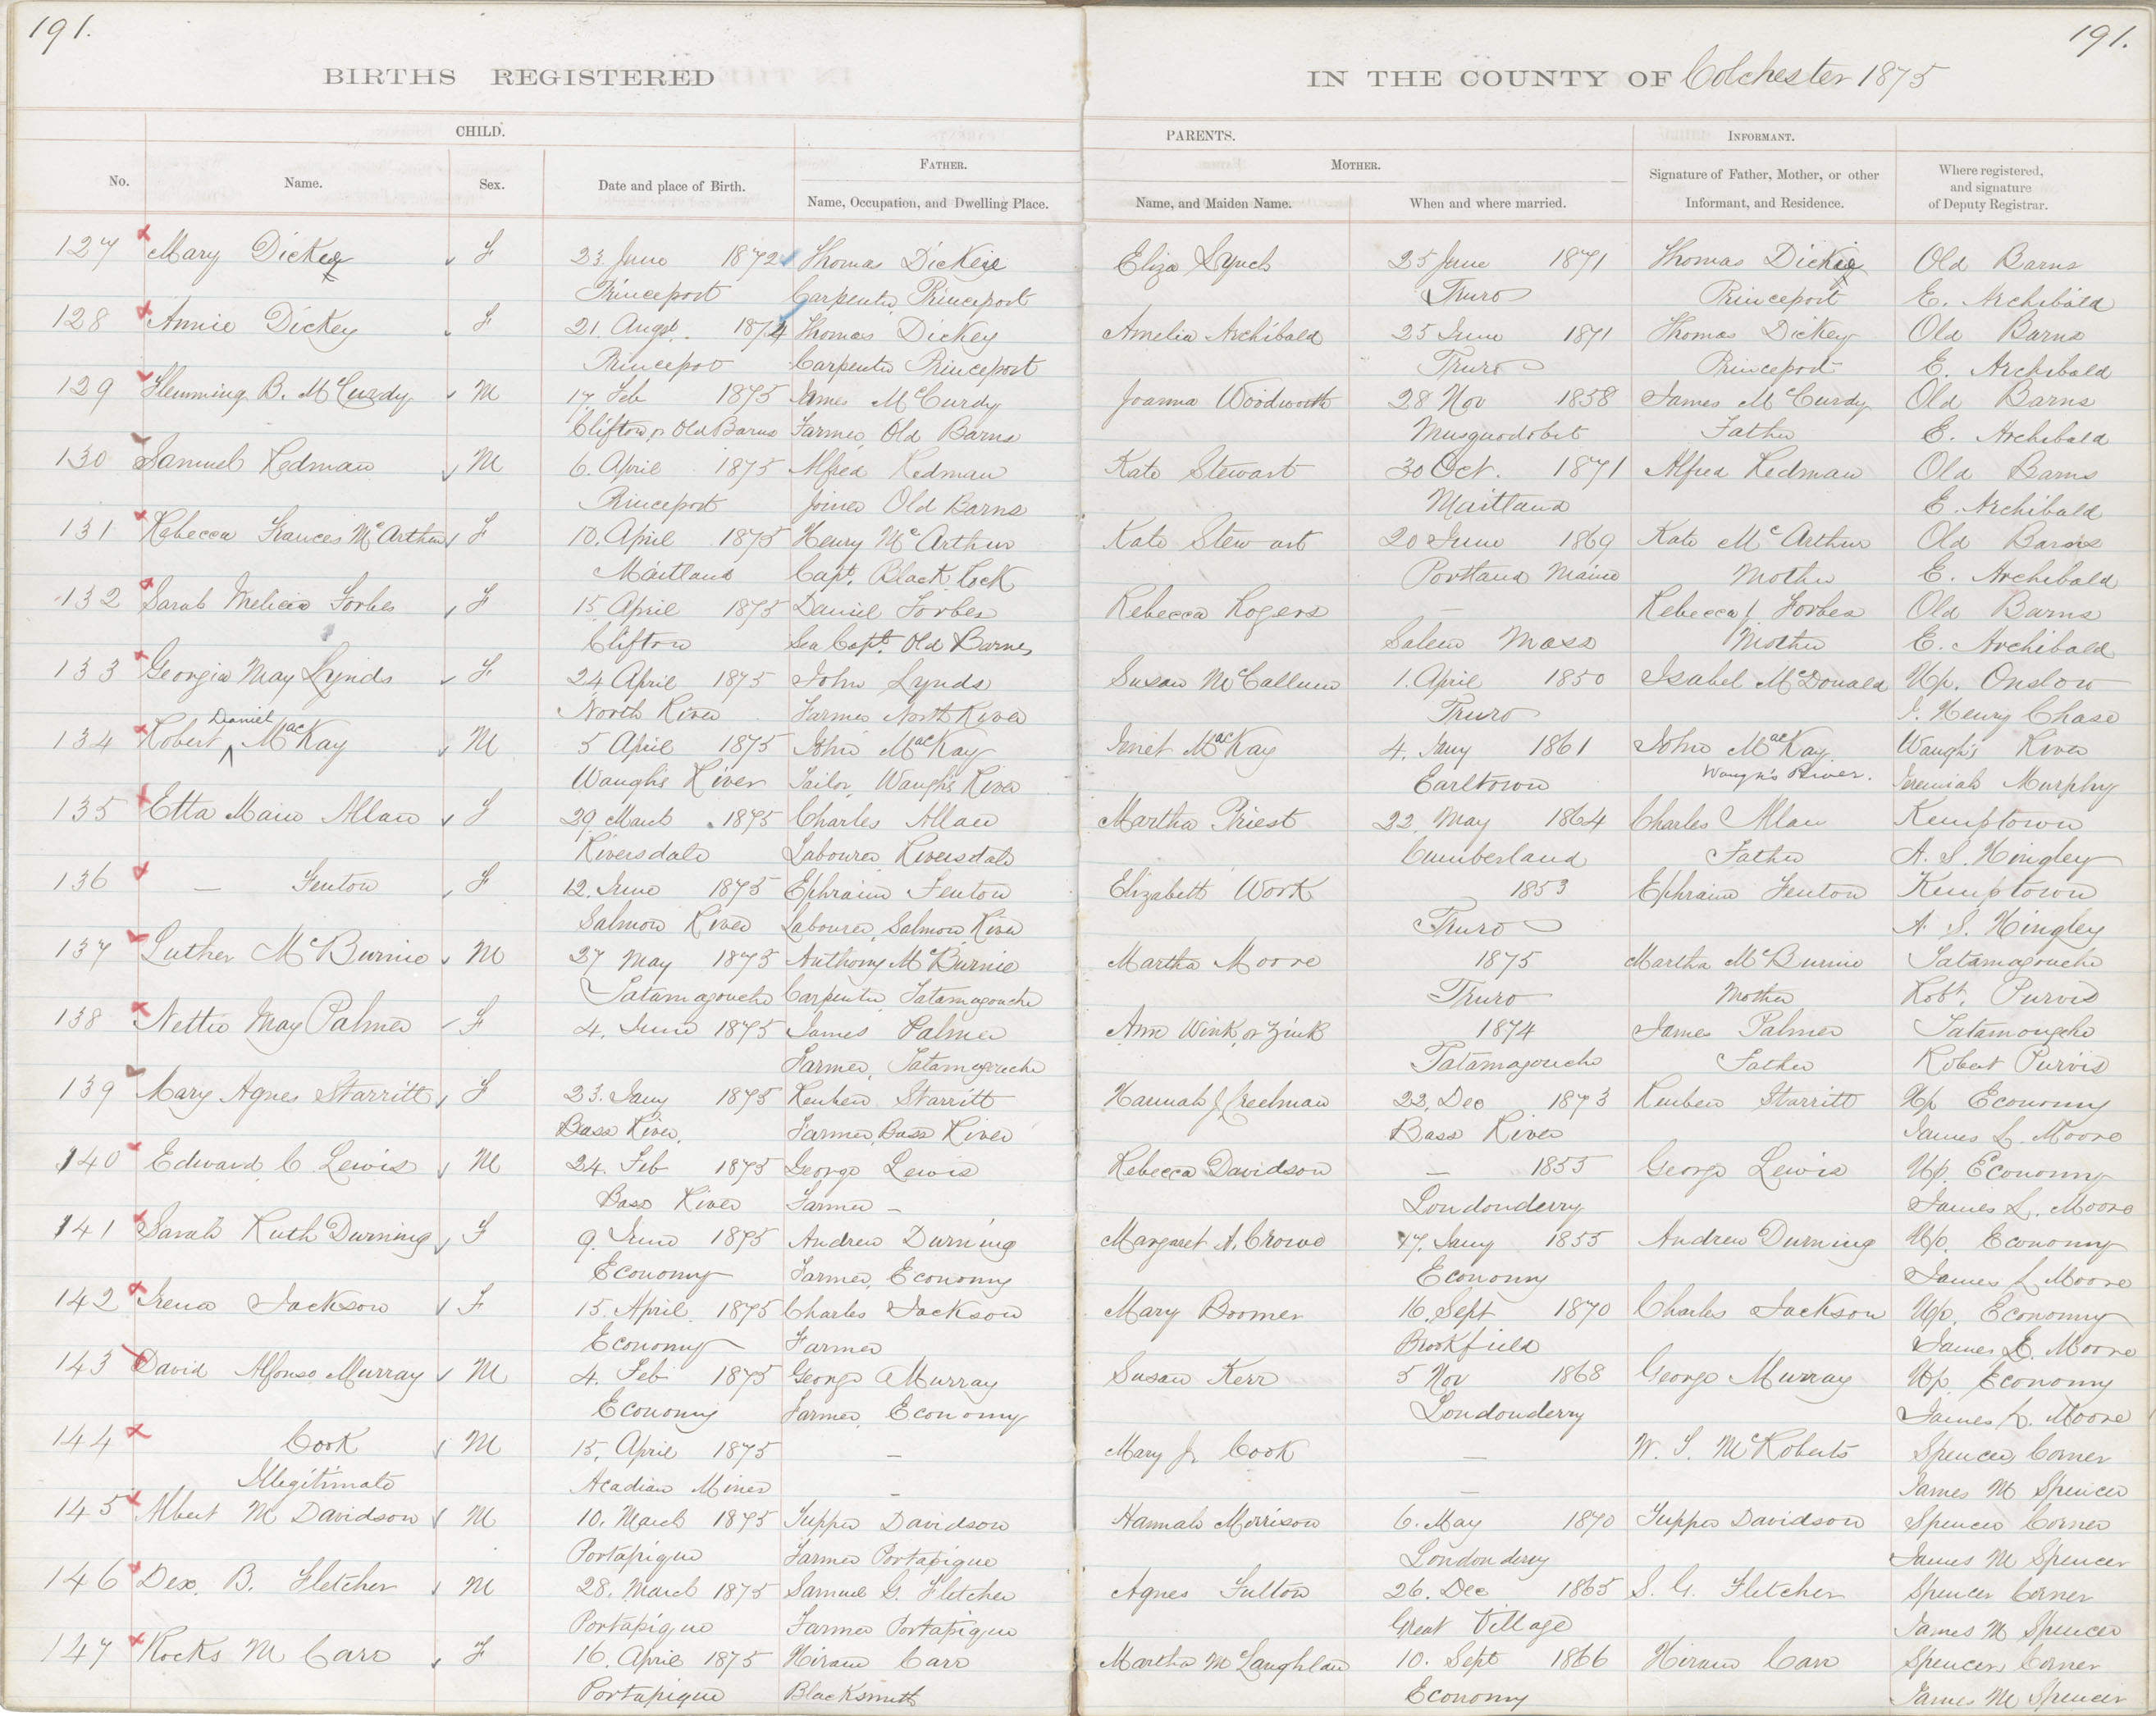 191.
191.
BIRTHS REGISTERED
IN THE COUNTY OF Colchester 1875
CHILD.
PARENTS.
INFORMANT.
FATHER.
MOTHER.
No.
Name.
Sex.
Date and place of Birth.
Name, Occupation, and Dwelling Place.
Name, and Maiden Name.
When and where married.
Signature of Father, Mother, or other Informant, and Residence.
Where registered, and signature of Deputy Registrar.
127 Mary Dickey F 23 June 1872 Thomas Dickey Eliza Lynch 25 June 1871 Thomas Dickie Old Barns
Princeport Carpenter Princeport Truro Princeport E. Archibald
128 Annie Dickey F 21 Augst. 1874 Thomas Dickey Amelia Archibald 25 June 1871 Thomas Dickey Old Barns
Princeport Carpenter Princeport Truro Princeport E. Archibald
129 Flemming B. McCurdy M 17 Feb 1875 James McCurdy Joanna Woodworth 28 Nov 1858 James McCurdy Old Barns
Clifton or Old Barns Farmer Old Barns Musquodobit Father E. Archibald
130 Samuel Redman M 6. April 1875 Alfred Redman Kate Stewart 30 Oct. 1871 Alfred Redman Old Barns
Princeport Joiner Old Barns Maitland E. Archibald
131 Rebecca Frances McArthur F 10. April 1875 Henry McArthur Kate Stewart 20 June 1869 Kate McArthur Old Barns
Maitland Capt. Black Rock Portland Maine Mother E. Archibald
132 Sarah Melicia Forbes F 15 April 1875 Daniel Forbes Rebecca Rogers — Rebecca Forbes Old Barns
Clifton Sea Capt. Old Barns Salem Mass Mother E. Archibald
133 Georgia May Lynds F 24 April 1875 John Lynds Susan McCallum 1. April 1850 Isabel McDonald Up. Onslow
North River Farmer North River Truro J. Henry Chase
134 Robert Daniel MacKay M 5 April 1875 John MacKay Jenet MacKay 4. Jany 1861 John MacKay Waugh's River
Waugh's River Tailor, Waugh's River Earltown Waugh's River. Jeremiah Murphy
135 Etta Main Allan F 29 March 1875 Charles Allan Martha Priest 22 May 1864 Charles Allan Kemptown
Riversdale Labourer Riversdale Cumberland Father A. S. Hingley
136 — Fenton F 12. June 1875 Ephraim Fenton Elizabeth Work 1853 Ephraim Fenton Kemptown
Salmon River Labourer, Salmon River Truro A. S. Hingley
137 Luther McBurnie M 27 May 1875 Anthony McBurnie Martha Moore 1875 Martha McBurnie Tatamagouche
Tatamagouche Carpenter, Tatamagouche Truro Mother Robt. Purvis
138 Nettie May Palmer F 4. June 1875 James Palmer Ann Wink or Zink 1874 James Palmer Tatamougche
Farmer, Tatamagouche Tatamagouche Father Robert Purvis
139 Mary Agnes Starritt F 23. Jany 1875 Reuben Starritt Hannah J. Creelman 22. Dec 1873 Reuben Starritt Up Economy
Bass River. Farmer, Bass River Bass River James L. Moore
140 Edward C Lewis M 24. Feb 1875 George Lewis Rebecca Davidson — 1855 George Lewis Up. Economy
Bass River Farmer — Londonderry James L. Moore
141 Sarah Ruth Durning F 9. June 1875 Andrew Durning Margaret A. Crowe 17. Jany 1855 Andrew Durning Up. Economy
Economy Farmer, Economy Economy James L Moore
142 Irena Jackson F 15. April 1875 Charles Jackson Mary Boomer 16. Sept 1870 Charles Jackson Up. Economy
Economy Farmer Brookfield James L. Moore
143 David Alfonso Murray M 4. Feb 1875 George Murray Susan Kerr 5 Nov 1868 George Murray Up. Economy
Economy Farmer, Economy Londonderry James L. Moore
144 Cook M 15. April 1875 — Mary J. Cook — W. S. McRoberts Spencer Corner
Illegitimate Acadian Mines — — James M Spencer
145 Albert M Davidson M 10. March 1875 Tupper Davidson Hannah Morrison 6. May 1870 Tupper Davidson Spencer Corner
Portapique Farmer Portapique Londonderry James M Spencer
146 Dex. B. Fletcher M 28. March 1875 Samuel G. Fletcher Agnes Fulton 26. Dec 1865 S. G. Fletcher Spencer Corner
Portapique Farmer Portapique Great Village James M Spencer
147 Rocks M Carr F 16. April 1875 Hiram Carr Martha McLaughlan 10. Sept 1866 Hiram Carr Spencer Corner
Portapique Blacksmith Economy James M Spencer